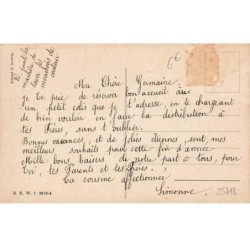 6€
Ma Chère Germaine.
Je te prie de réserver bon accueil au
petit colis que je t'adresse, en te chargeant
de bien vouloir en faire la distribution à
tes Frères, sans t'oublier.
Bonnes vacances, et de jolies étrennes, sont, mes
meilleurs souhaits pour cette fin d'année
Mille bons baisers de notre part à tous, pour
Toi, les Parents et tes Frères!
Ta cousine affectionnée
Simonne.
25718